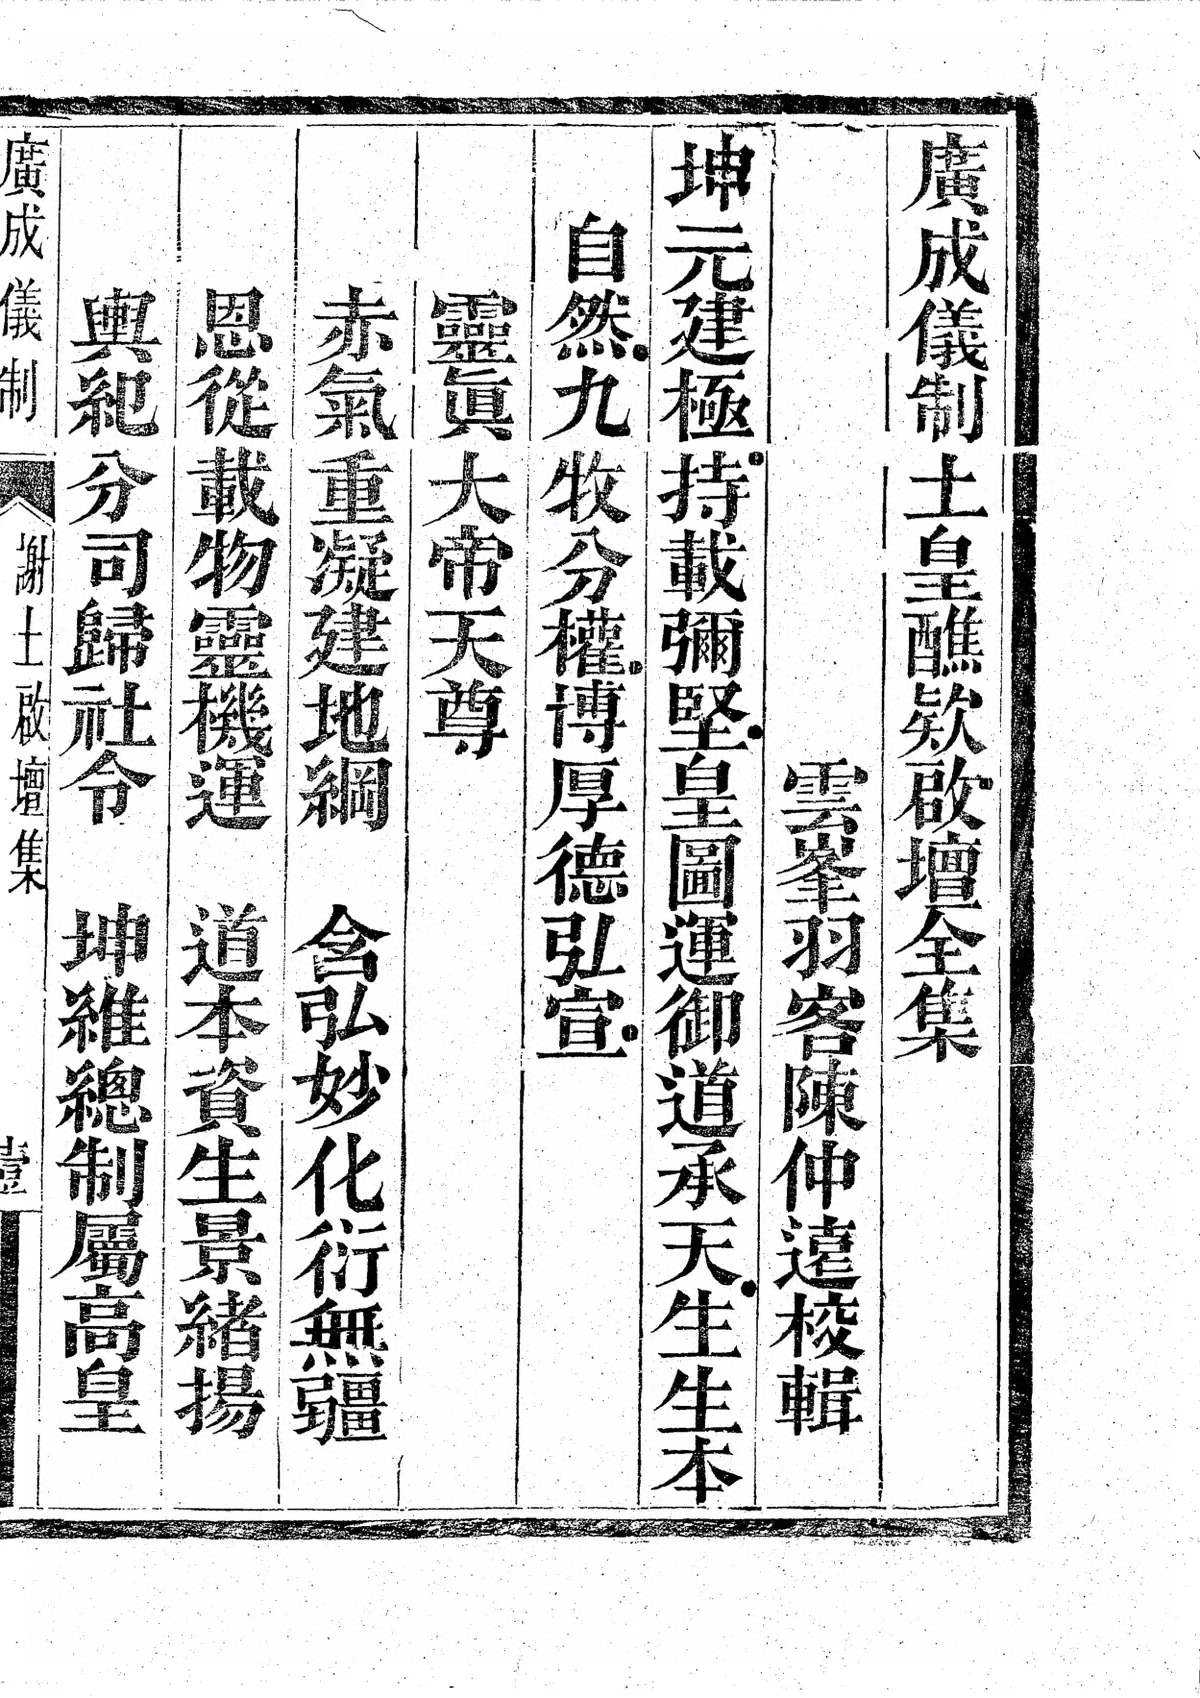 廣成儀制土皇醮欵啟壇全集
雲峯羽客陳仲遠校輯
坤元建極持載彌堅皇圖運御道承天生生本
自然九牧分權博厚德弘宣
靈眞大帝天尊
赤氣重凝建地綱　含弘妙化衍無疆
恩從載物靈機運　道本資生景緒揚
輿紀分司歸社令　坤維總制屬高皇
廣成儀制　謝土啟壇集　壹